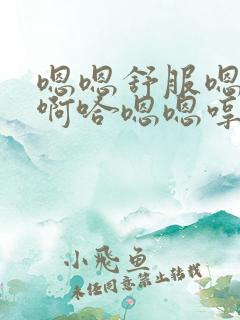 嗯嗯舒服嗯
啊哈嗯嗯哼
小飞鱼
未经同意禁止转载